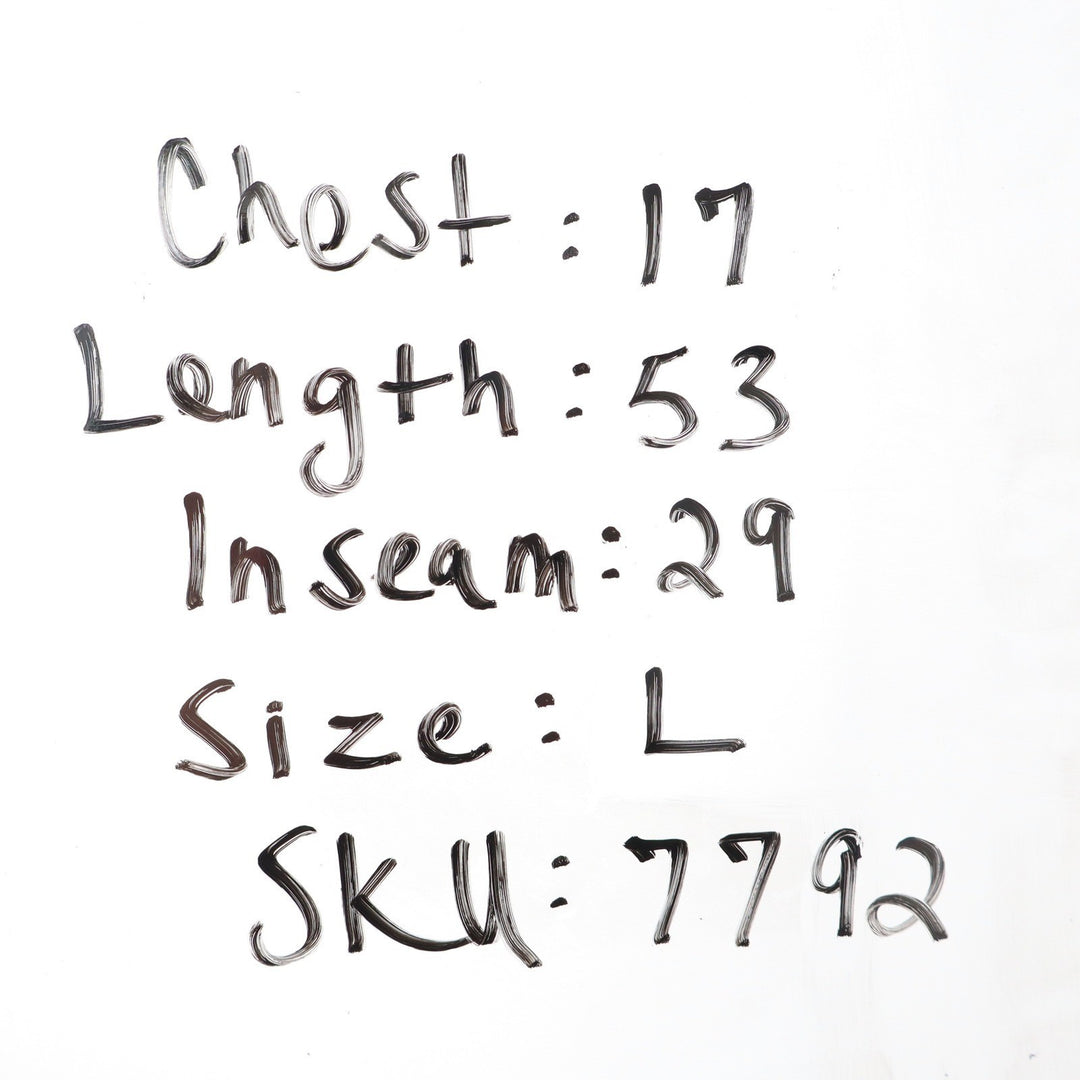 Chest : 17
Length : 53
Inseam : 29
Size : L
SKU : 7792